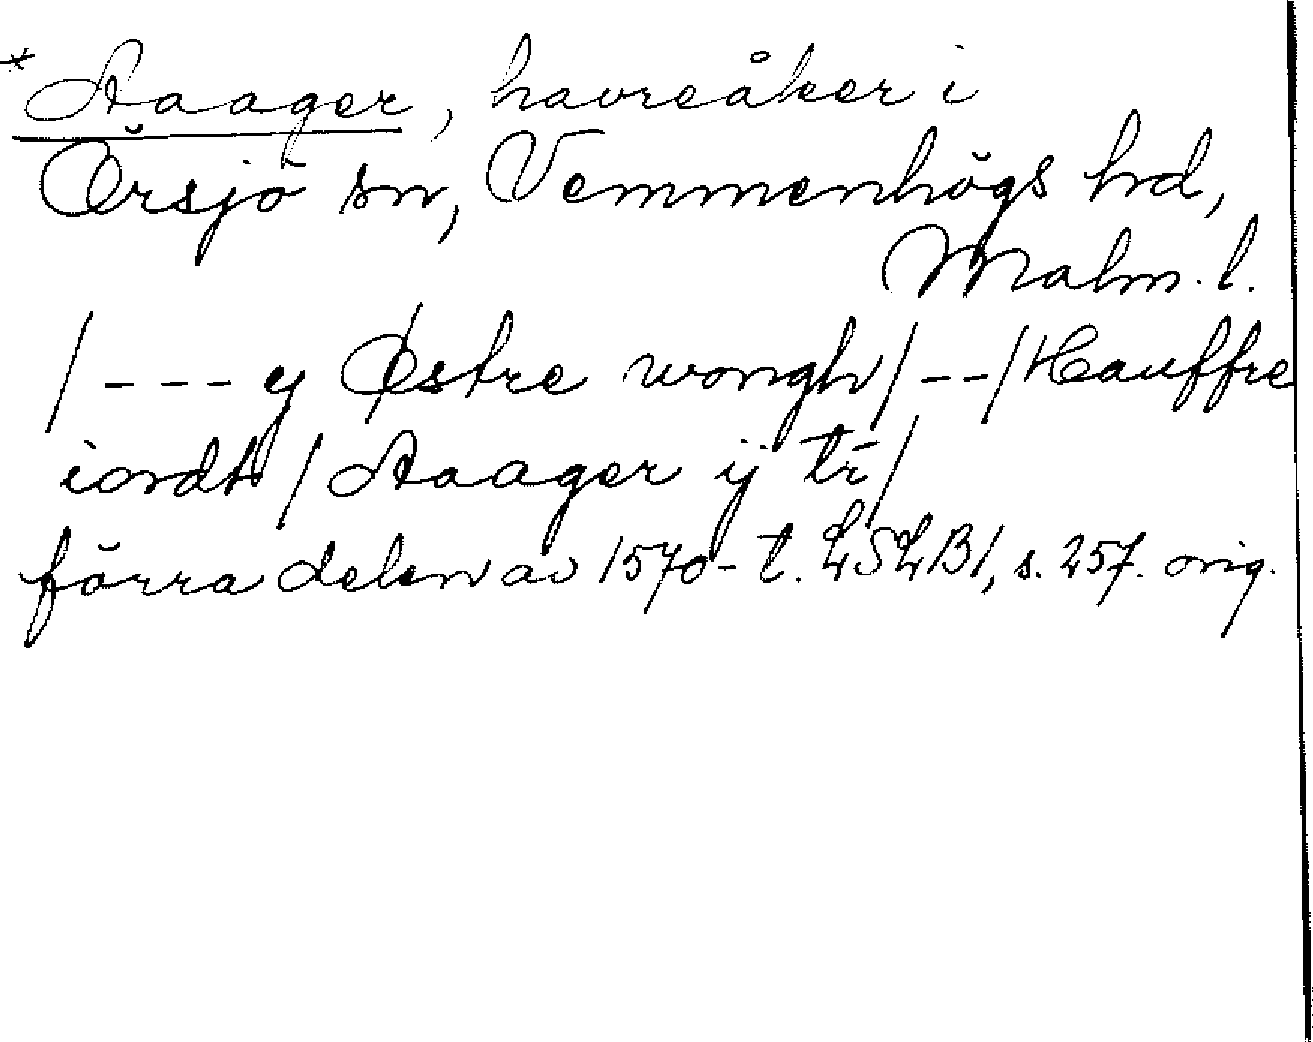 *Aaager, havreåker i
Örsjö sn, Vemmenhögs hrd,
Malm. l.
/---y Østre wongh/--/Hauffre
iordh/Aaager ij tr/
förra delen av 1570-t. LSLB1, s. 257. orig.